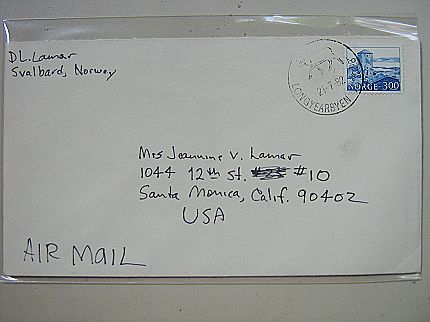 D L. Lamar
Svalbard, Norway
21-7-82
LONGYEARBYEN
NORGE 300
Mrs Jeannine V. Lamar
1044 12th St. #10
Santa Monica, Calif. 90402
USA
AIR MAIL